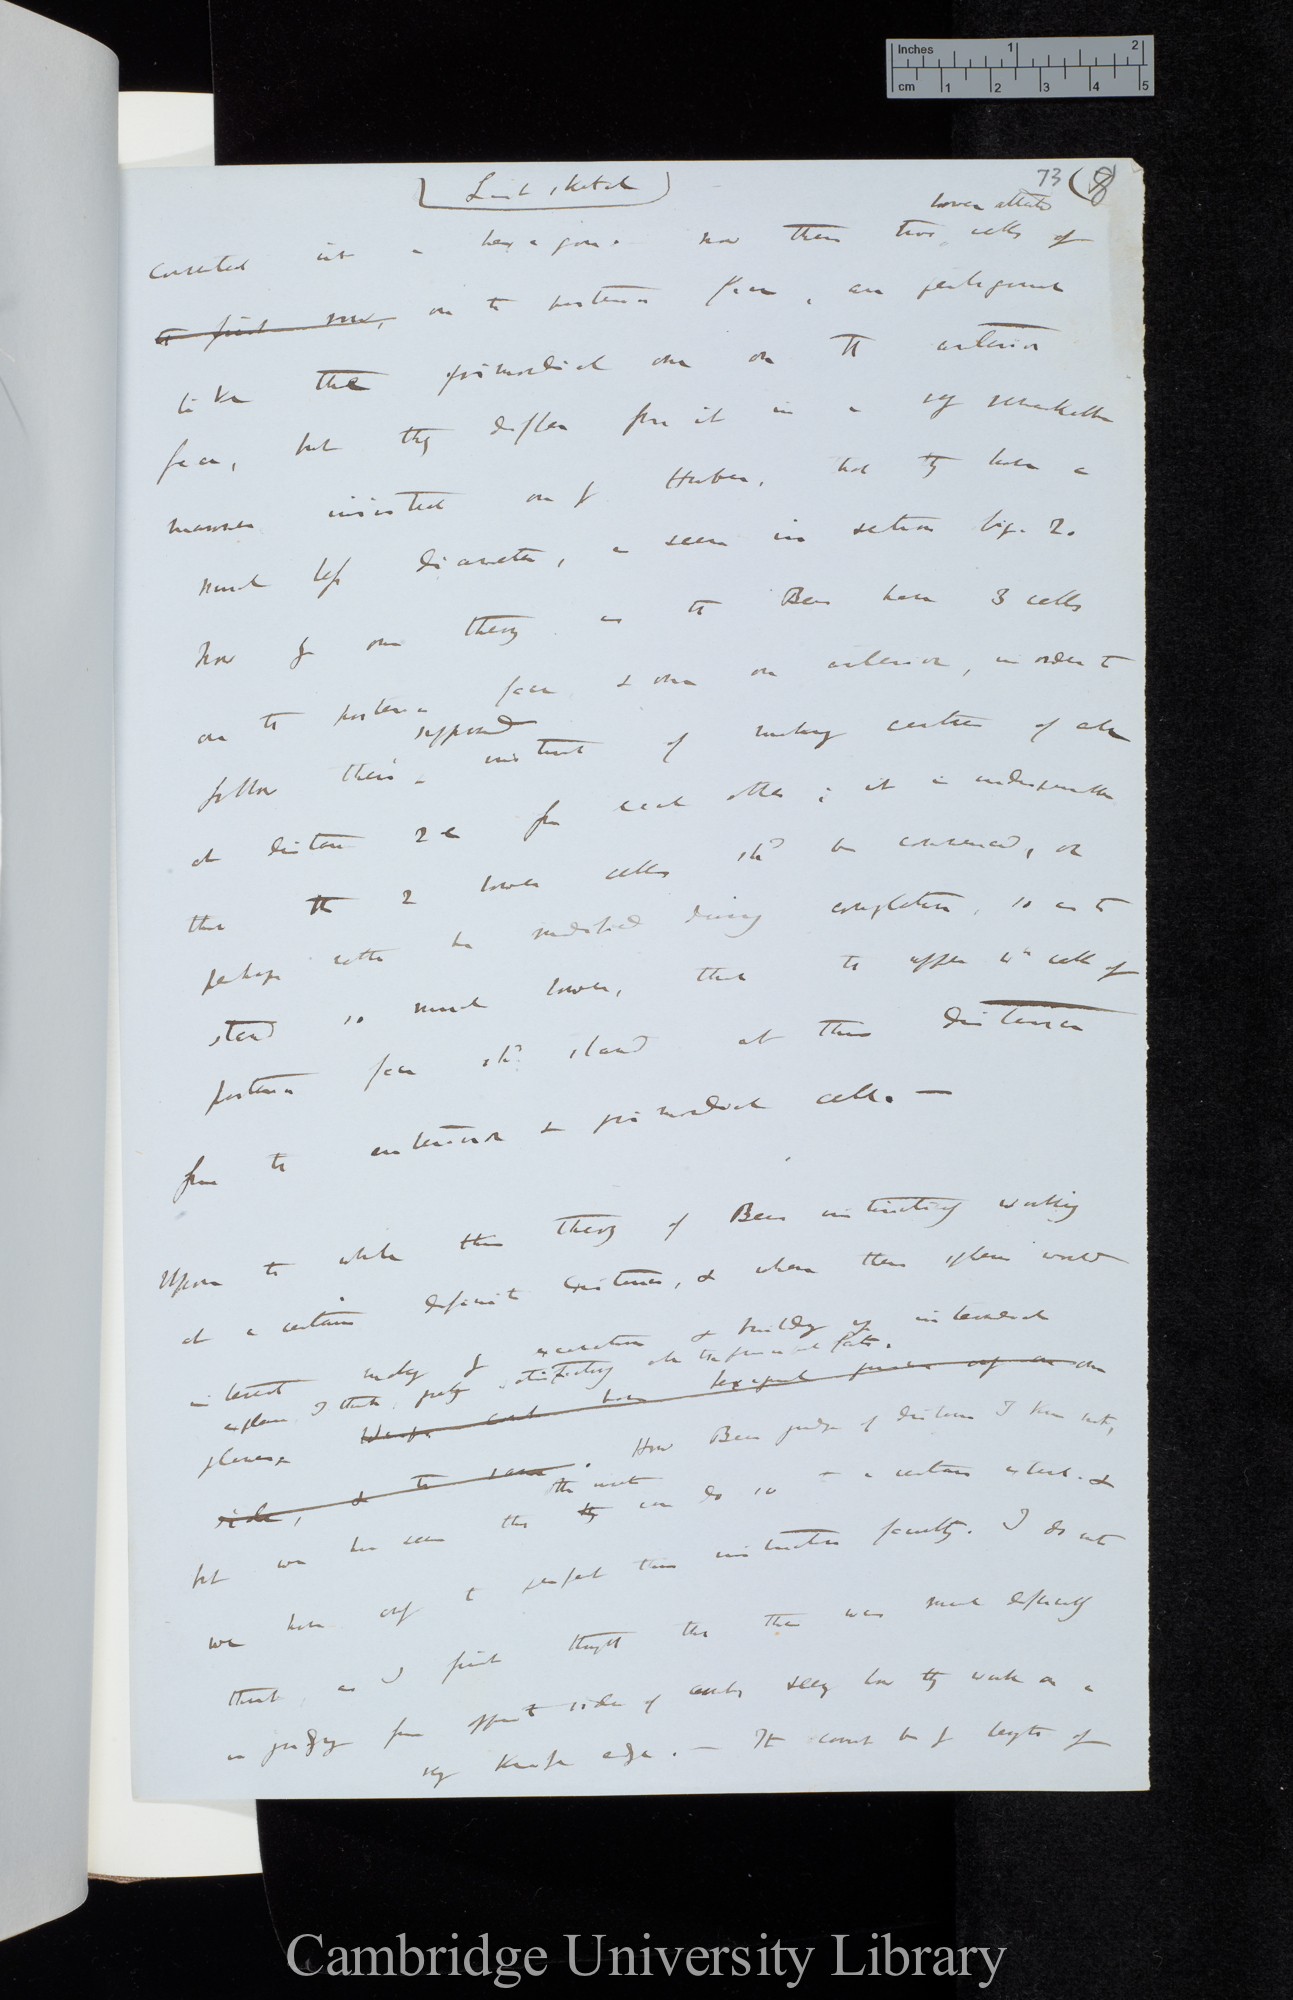 Inches 1 2
cm 1 2 3 4 5
73 (8
[Last sketch]
lower attached
converted into a hexagon. — Now these two cells of
the first row, on the posterior face, are pentagonal
like the primordial one on the anterior
face, but they differ from it in a very remarkable
manner insisted on by Huber, that they have a
much less diameter, as seen in section fig. 2.
Now by our theory as the Bees have 3 cells
on the posterior face & one on anterior, in order to
supposed
follow their instinct of making centres of all
at distance 2 from each other; it is indispensable
that the 2 lower cells shd be commenced, or
perhaps rather be modified during completion, so as to
stand so much lower, that the upper cell of
posterior face shd. stand at this distance
from the anterior & primordial cell. —
Upon the whole this theory of Bees instinctively working
at a certain definite distance, & where these spheres would
intersect making by excavation & building up intermediate
explains, I think, pretty satisfactorily all the facts.
planes
side, & the same. How Bees judge of distance I know not,
the most
but we have seen that they can do so to a certain extent. &
we have only to perfect this instinctive faculty. I do not
think, as I first thought that there was much difficulty
in judging from opposite sides of comb, seeing how they work on a
very knife edge. — It cannot be by length of
Cambridge University Library